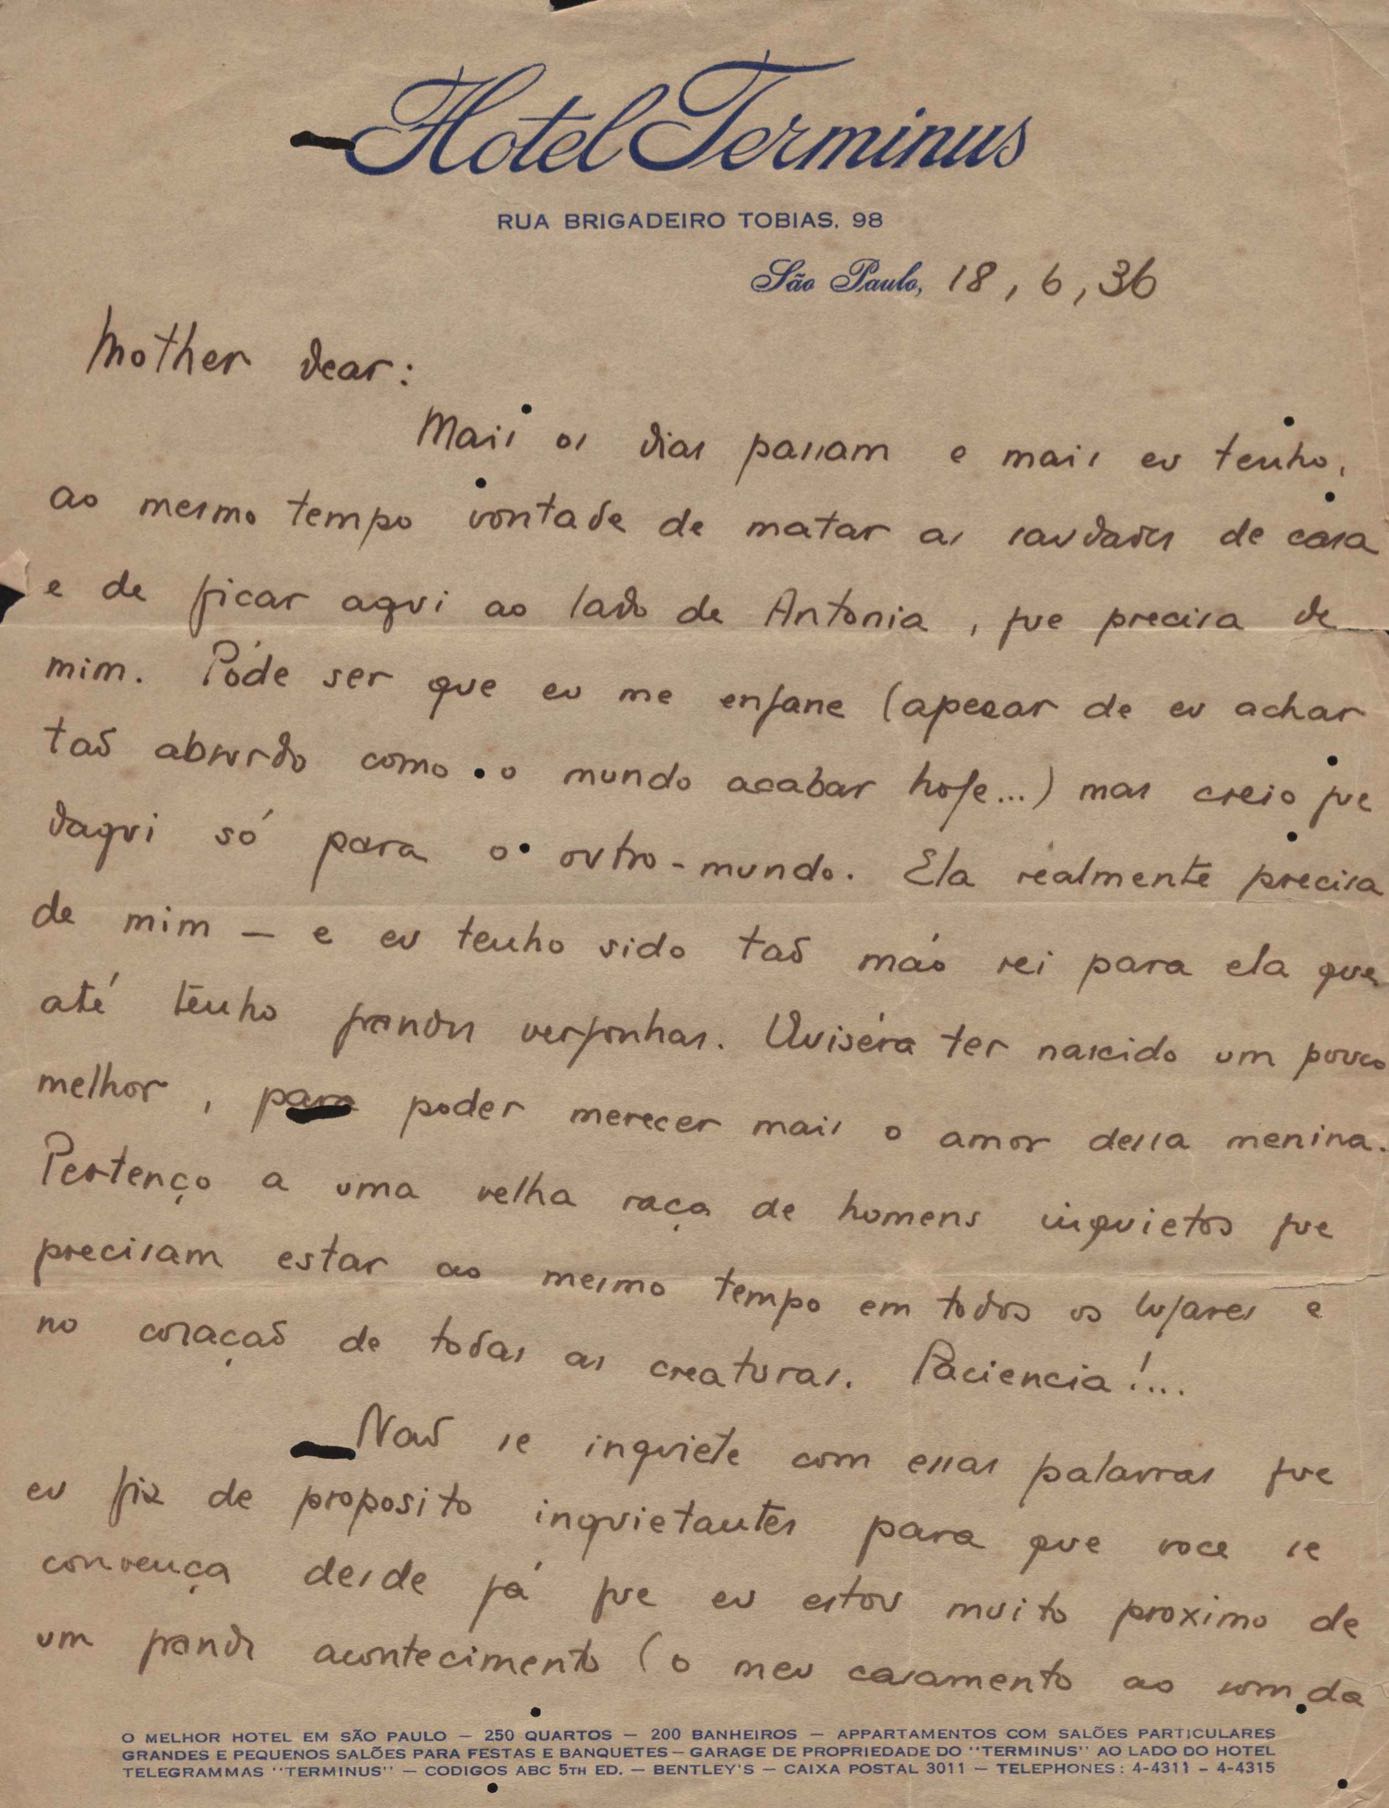 Hotel Terminus
RUA BRIGADEIRO TOBIAS, 98
São Paulo, 18, 6, 36
Mother dear:
Mais os dias passam e mais eu tenho,
ao mesmo tempo vontade de matar as saudades de casa
e de ficar aqui ao lado de Antonia, que precisa de
mim. Póde ser que eu me engane (apezar de eu achar
tão absurdo como o mundo acabar hoje...) mas creio que
daqui só para o outro-mundo. Ela realmente precisa
de mim — e eu tenho sido tão máo rei para ela que
até tenho grandes vergonhas. Quiséra ter nascido um pouco
melhor, para poder merecer mais o amor dessa menina.
Pertenço a uma velha raça de homens inquietos que
precisam estar ao mesmo tempo em todos os lugares e
no coração de todas as creaturas. Paciencia!...
Não se inquiete com essas palavras que
eu fiz de proposito inquietantes para que voce se
convença desde já que eu estou muito proximo de
um grande acontecimento (o meu casamento ao som da
O MELHOR HOTEL EM SÃO PAULO — 250 QUARTOS — 200 BANHEIROS — APPARTAMENTOS COM SALÕES PARTICULARES
GRANDES E PEQUENOS SALÕES PARA FESTAS E BANQUETES — GARAGE DE PROPRIEDADE DO "TERMINUS" AO LADO DO HOTEL
TELEGRAMMAS "TERMINUS" — CODIGOS ABC 5TH ED. — BENTLEY'S — CAIXA POSTAL 3011 — TELEPHONES: 4-4311 - 4-4315